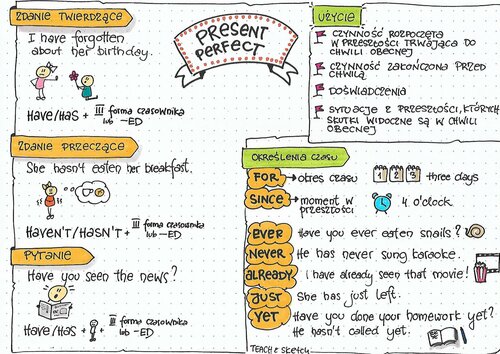 ZDANIE TWIERDZĄCE
I have forgotten
about her birthday.
HAVE/HAS + III forma czasownika
lub -ED
ZDANIE PRZECZĄCE
She hasn't eaten her breakfast.
HAVEN'T/HASN'T + III forma czasownika
lub -ED
PYTANIE
Have you seen the news?
HAVE/HAS + + III forma czasownika
lub -ED
PRESENT
PERFECT
UŻYCIE
CZYNNOŚĆ ROZPOCZĘTA
W PRZESZŁOŚCI TRWAJĄCA DO
CHWILI OBECNEJ
CZYNNOŚĆ ZAKOŃCZONA PRZED
CHWILĄ
DOŚWIADCZENIA
SYTUACJE Z PRZESZŁOŚCI, KTÓRYCH
SKUTKI WIDOCZNE SĄ W CHWILI
OBECNEJ
OKREŚLENIA CZASU
FOR → okres czasu 1 2 3 three days
SINCE → moment w
przeszłości 4 o'clock
EVER Have you ever eaten snails?
NEVER He has never sung karaoke.
ALREADY I have already seen that movie!
JUST She has just left.
YET Have you done your homework yet?
He hasn't called yet.
TEACH & SKETCH